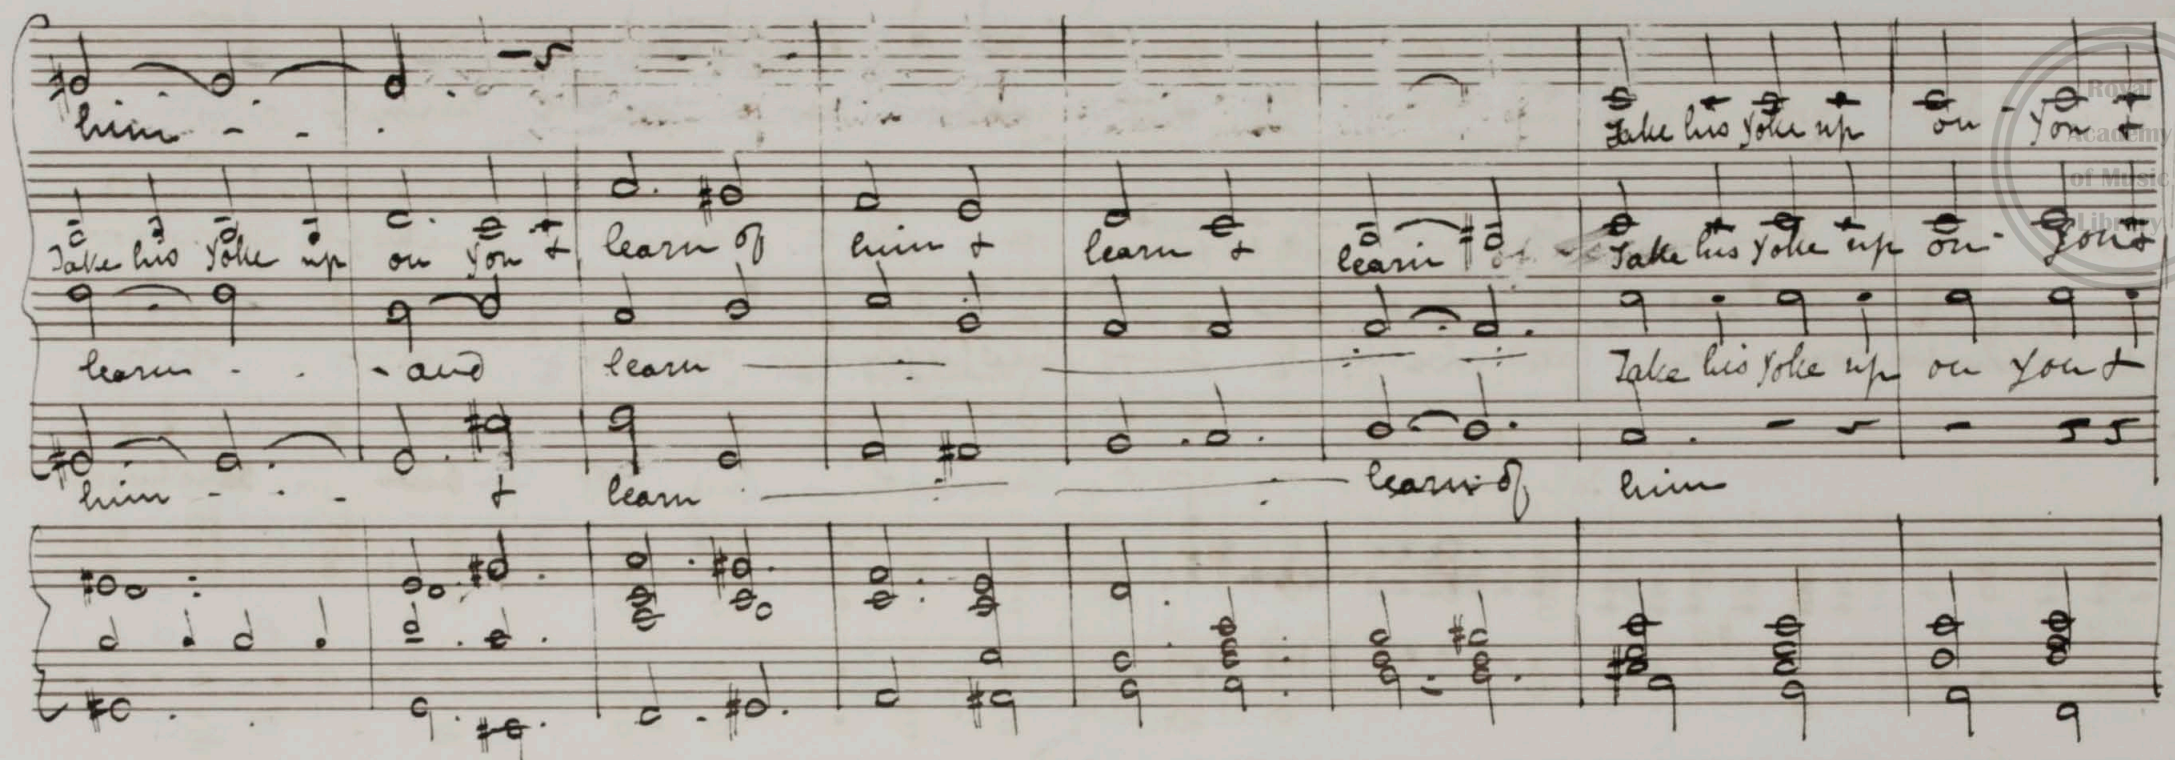 him - - . Take his Yoke up on - You +
Take his Yoke up on You + learn of him + learn + learn of Take his Yoke up on - You +
learn - - - and learn Take his Yoke up on You +
him - - - + learn learn of him
Royal
Academy
of Music
Library